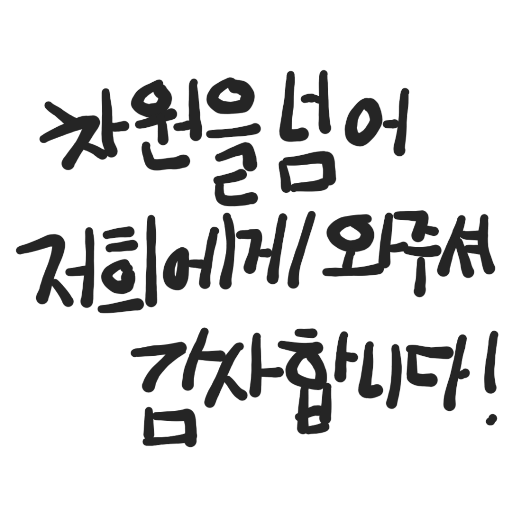 차원을 넘어
저희에게 와주셔
감사합니다!